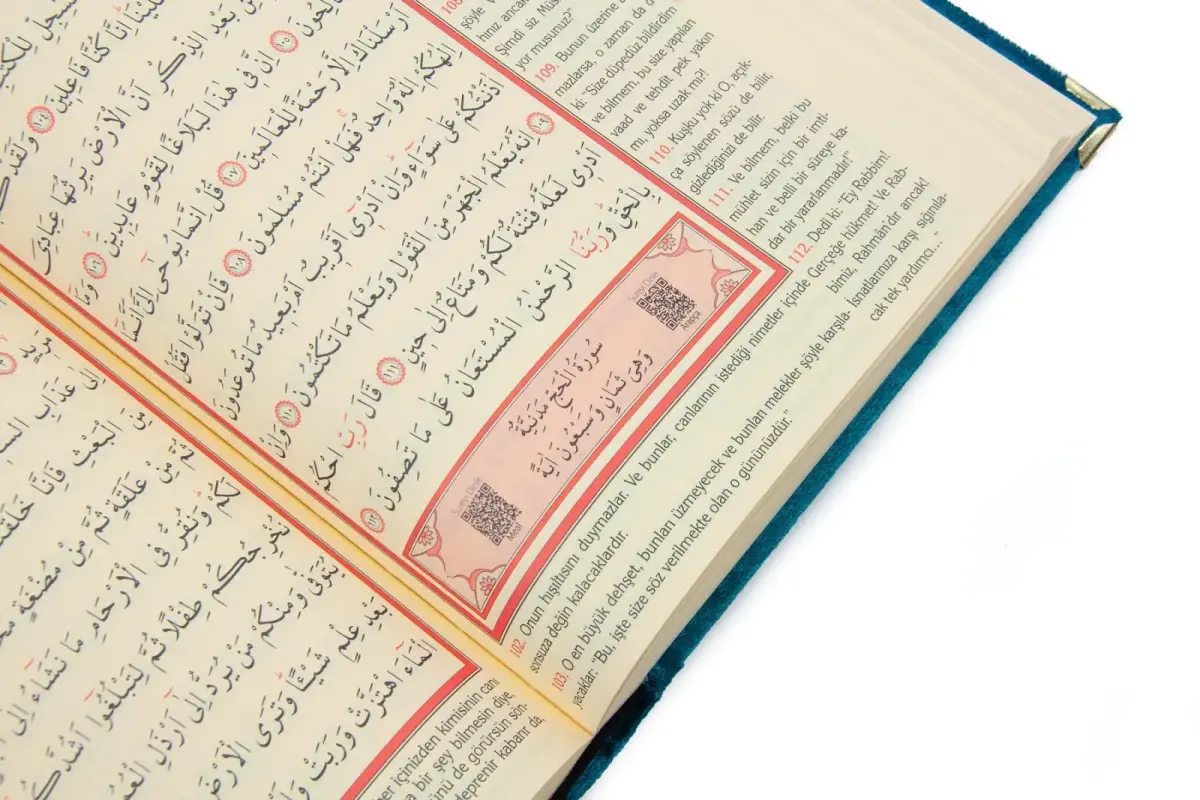 لِلْكُتُبِ
عَلَيْنَا اِنَّا كُنَّا فَاعِلِينَ ١٠٤ وَلَقَدْ
بَعْدِ الذِّكْرِ اَنَّ الْاَرْضَ يَرِثُهَا عِبَادِىَ
١٠٥ اِنَّ فِى هٰذَا لَبَلَاغًا لِقَوْمٍ عَابِدِينَ ١٠٦ وَمَا
اَرْسَلْنَاكَ اِلَّا رَحْمَةً لِلْعَالَمِينَ ١٠٧ قُلْ اِنَّمَا يُوحٰى اِلَىَّ اَنَّمَا
اِلٰهُكُمْ اِلٰهٌ وَاحِدٌ فَهَلْ اَنْتُمْ مُسْلِمُونَ ١٠٨ فَاِنْ تَوَلَّوْا فَقُلْ
اٰذَنْتُكُمْ عَلٰى سَوَاءٍ وَاِنْ اَدْرِى اَقَرِيبٌ اَمْ بَعِيدٌ مَا تُوعَدُونَ
١٠٩ اِنَّهُ يَعْلَمُ الْجَهْرَ مِنَ الْقَوْلِ وَيَعْلَمُ مَا تَكْتُمُونَ ١١٠ وَاِنْ
اَدْرِى لَعَلَّهُ فِتْنَةٌ لَكُمْ وَمَتَاعٌ اِلٰى حِينٍ ١١١ قَالَ رَبِّ احْكُمْ
بِالْحَقِّ وَرَبُّنَا الرَّحْمٰنُ الْمُسْتَعَانُ عَلٰى مَا تَصِفُونَ ١١٢
سُورَةُ الْحَجِّ مَدَنِيَّةٌ
وَهِىَ ثَمَانٍ وَسَبْعُونَ اٰيَةً
Arapça
Meal
108.
şöyle
hınız ancak
Şimdi siz Müs
yor musunuz?"
109. Bunun üzerine
mazlarsa, o zaman da d
ki: "Size düpedüz bildirdim
ve bilmem, bu size yapılan
vaad ve tehdit pek yakın
mı, yoksa uzak mı?!
110. Kuşku yok ki O, açık-
ça söylenen sözü de bilir,
gizlediğinizi de bilir.
111. Ve bilmem, belki bu
mühlet sizin için bir imti-
han ve belli bir süreye ka-
dar bir yararlanmadır!"
112. Dedi ki: "Ey Rabbim!
Gerçeğe hükmet! Ve Rab-
bimiz, Rahmân'dır ancak!
İsnatlarınıza karşı sığınıla-
cak tek yardımcı..."
102. Onun hışıltısını duymazlar. Ve bunlar, canlarının istediği nimetler içinde
sonsuza değin kalacaklardır.
103. O en büyük dehşet, bunları üzmeyecek ve bunları melekler şöyle karşıla-
yacaklar: "Bu, işte size söz verilmekte olan o gününüzdür."
اِلٰى عَذَابِ
مِنَ الْبَعْثِ فَاِنَّا
ثُمَّ مِنْ عَلَقَةٍ ثُمَّ مِنْ مُضْغَةٍ
لَكُمْ وَنُقِرُّ فِى الْاَرْحَامِ مَا نَشَاءُ اِلٰى
نُخْرِجُكُمْ طِفْلًا ثُمَّ لِتَبْلُغُوا اَشُدَّكُمْ
يُتَوَفّٰى وَمِنْكُمْ مَنْ يُرَدُّ اِلٰى اَرْذَلِ
بَعْدِ عِلْمٍ شَيْئًا وَتَرَى الْاَرْضَ
الْمَاءَ اهْتَزَّتْ وَرَبَتْ
içinizden kimisinin canı
bir şey bilmesin diye,
de görürsün sön-
deprenir kabarır da,